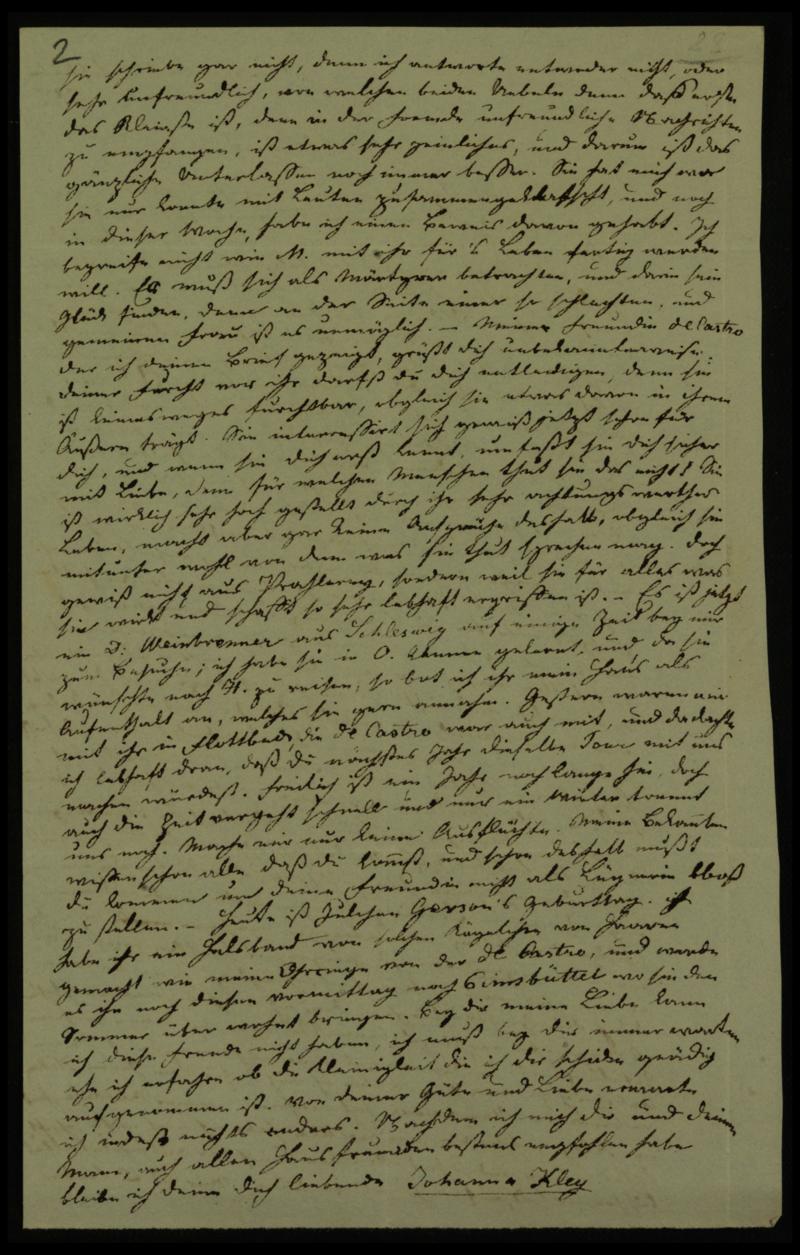 2
sie schreibe gar nicht, denn ich antworte entweder nicht, oder
sehr unfreundlich, von welchen beiden Uebeln denn daß erste
das Kleinste ist, denn in der Fremde unfreundliche Nachrichten
zu empfangen, ist etwas sehr peinliches, und darum ist das
gänzliche Unterlassen noch immer besser. Sie hat mich wo
sie nur konnte mit Leuten zusammengeklatscht, und noch
in dieser Woche, habe ich einen Beweis davon gehabt. Ich
begreife nicht wie M. mit ihr für's Leben fertig werden
will. Er muß sich als Märtyrer betrachten, und darin sein
Glück finden, denn an der Seite einer so schlechten, und
gemeinen Frau ist es unmöglich. – Meine Freundin de Castro
der ich deinen Brief gezeigt, grüßt dich unbekannterweise.
deiner Furcht vor ihr darfst du dich entledigen, denn sie
ist keinesweges furchtbar, obgleich sie etwas davon in ihrem
Äußern trägt. Sie interessirt sich gewiß jetzt schon für
dich, und wenn sie dich erst kennt, umfaßt sie dich sicher
mit Liebe, denn für welchen Menschen thut sie das nicht! Sie
ist wirklich sehr hoch gestellt durch ihr sehr achtungswerthes
Leben, macht aber gar keine Ansprüche deshalb, obgleich sie
mitunter wohl von dem was sie thut sprechen mag. doch
gewiß nicht aus Prahlerey, sondern weil sie für alles was
sie wirkt und schafft so sehr lebhaft ergriffen ist. – Es ist jetzt
ein D: Weinbrenner aus Schleswig auf einige Zeit bey mir
zum Besuche; ich habe sie in O. kennen gelernt, und da sie
wünschte nach H. zu reisen, so bot ich ihr mein Haus als
Aufenthalt an, welches sie gern annahm. Gestern waren wir
mit ihr in Flottbeck, die de Castro war auch mit, und da dachte
ich lebhaft dran, daß du nächstes Jahr dieselbe Tour mit uns
machen würdest. Freilich ist ein Jahr noch lange hin, doch
auch die Zeit vergeht schnell und nur ein Winter trennt
uns noch. Mache mir nur keine Ausflüchte. Meine Bekannten
wissen schon alle daß du kommst, und schon deshalb mußt
du kommen um deine Freundin nicht als Lügnerin bloß
zu stellen. – Heute ist Julchen Gerson's Geburttag. ich
habe ihr ein Halsband von solchen Kügelchen von Haaren
gemacht wie meine Ohrringe von der de Castro, und werde
es ihr noch diesen Vormittag nach Eimsbüttel wo sie den
Sommer über wohnt bringen. Bey dir meine Liebe kann
ich diese Freude nicht haben, ich muß bey dir immer warten
ehe ich erfahre ob die Kleinigkeit die ich dir schicke gnädig
aufgenommen ist. Von deiner Güte und Liebe erwarte
ich indeß nichts anders. Nachdem ich mich dir und deinem
Mann, auch allen Hausfreunden bestens empfohlen habe
bleibe ich deine dich liebende Johanna Kley